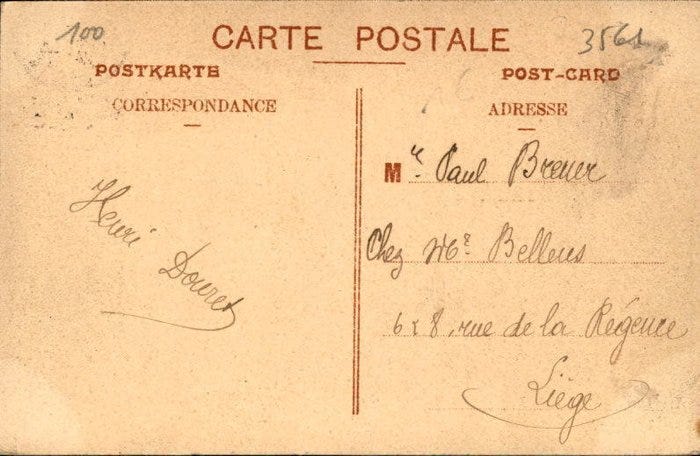 100
3561
CARTE POSTALE
POSTKARTE
POST-CARD
CORRESPONDANCE
ADRESSE
Mr. Paul Breuer
Chez Mr. Bellens
6 & 8, rue de la Régence
Liège
Henri Douret